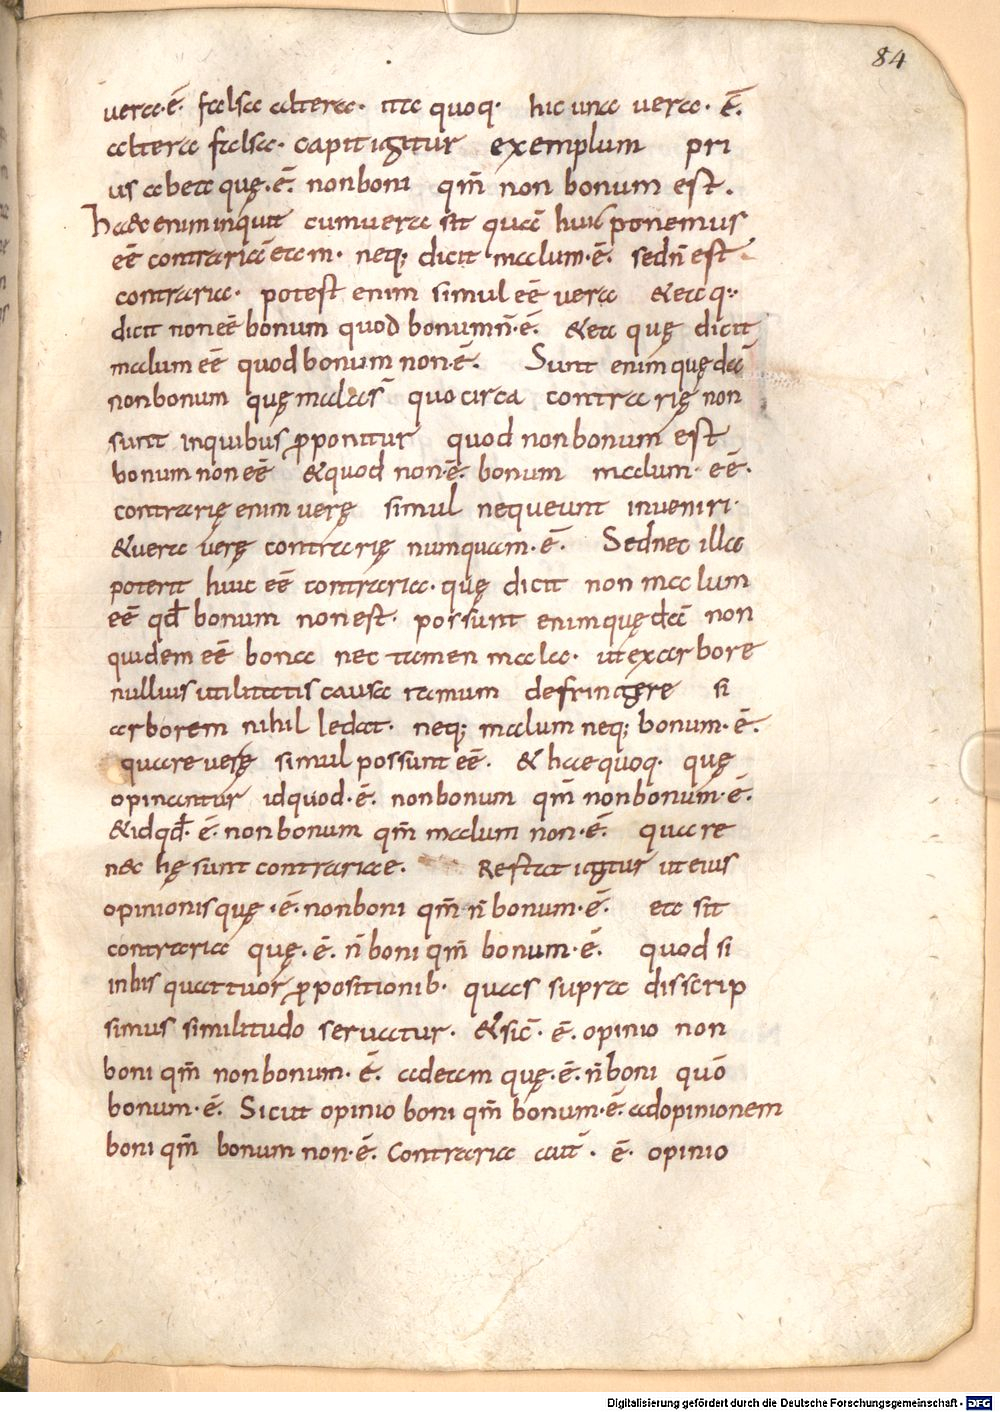 84
uera·ē· falsa altera· ita quoq· hic una uera· ē·
altera falsa· capit igitur exemplum pri
us ab ea quę·ē· non boni qm̄ non bonum est.
haec enim inquit cum uera sit quā huic ponemus
eē contrariā etam· neq; dicit malum·ē· sed n̄ est
contraria· potest enim simul eē uera & ea q··
dicit non eē bonum quod bonum n̄·ē· & ea quę dicit
malum eē quod bonum non·ē· Sunt enim quędā
non bonum quę mala s̄ quo circa contrarię non
sunt in quibus ꝓponitur quod non bonum est
bonum non eē & quod non·ē· bonum malum·eē·
contrarię enim uerę simul nequeunt inueniri·
& uera uerę contrarię numquam·ē· Sed nec illa
poterit huic eē contraria· quę dicit non malum
eē qđ bonum non est· possunt enim quędā non
quidem eē bona nec tamen mala· ut ex arbore
nullius utilitatis causa ramum defringere si
arborem nihil ledat· neq; malum neq; bonum·ē·
quare uerę simul possunt eē· & hae quoq· quę
opinantur id quod·ē· non bonum qm̄ non bonum·ē·
& id qđ·ē· non bonum qm̄ malum non·ē· quare
nec hę sunt contrariae· Restat igitur ut eius
opinionis quę·ē· non boni qm̄ n̄ bonum·ē· ea sit
contraria quę·ē· n̄ boni qm̄ bonum·ē· quod si
in his quattuor ꝓpositionib· quas supra disscrip
simus similitudo seruatur· & sic·ē· opinio non
boni qm̄ non bonum·ē· ad eam quę·ē· n̄ boni quō
bonum·ē· Sicut opinio boni qm̄ bonum·ē· ad opinionem
boni qm̄ bonum non·ē· Contraria aut̄·ē· opinio
Digitalisierung gefördert durch die Deutsche Forschungsgemeinschaft - DFG